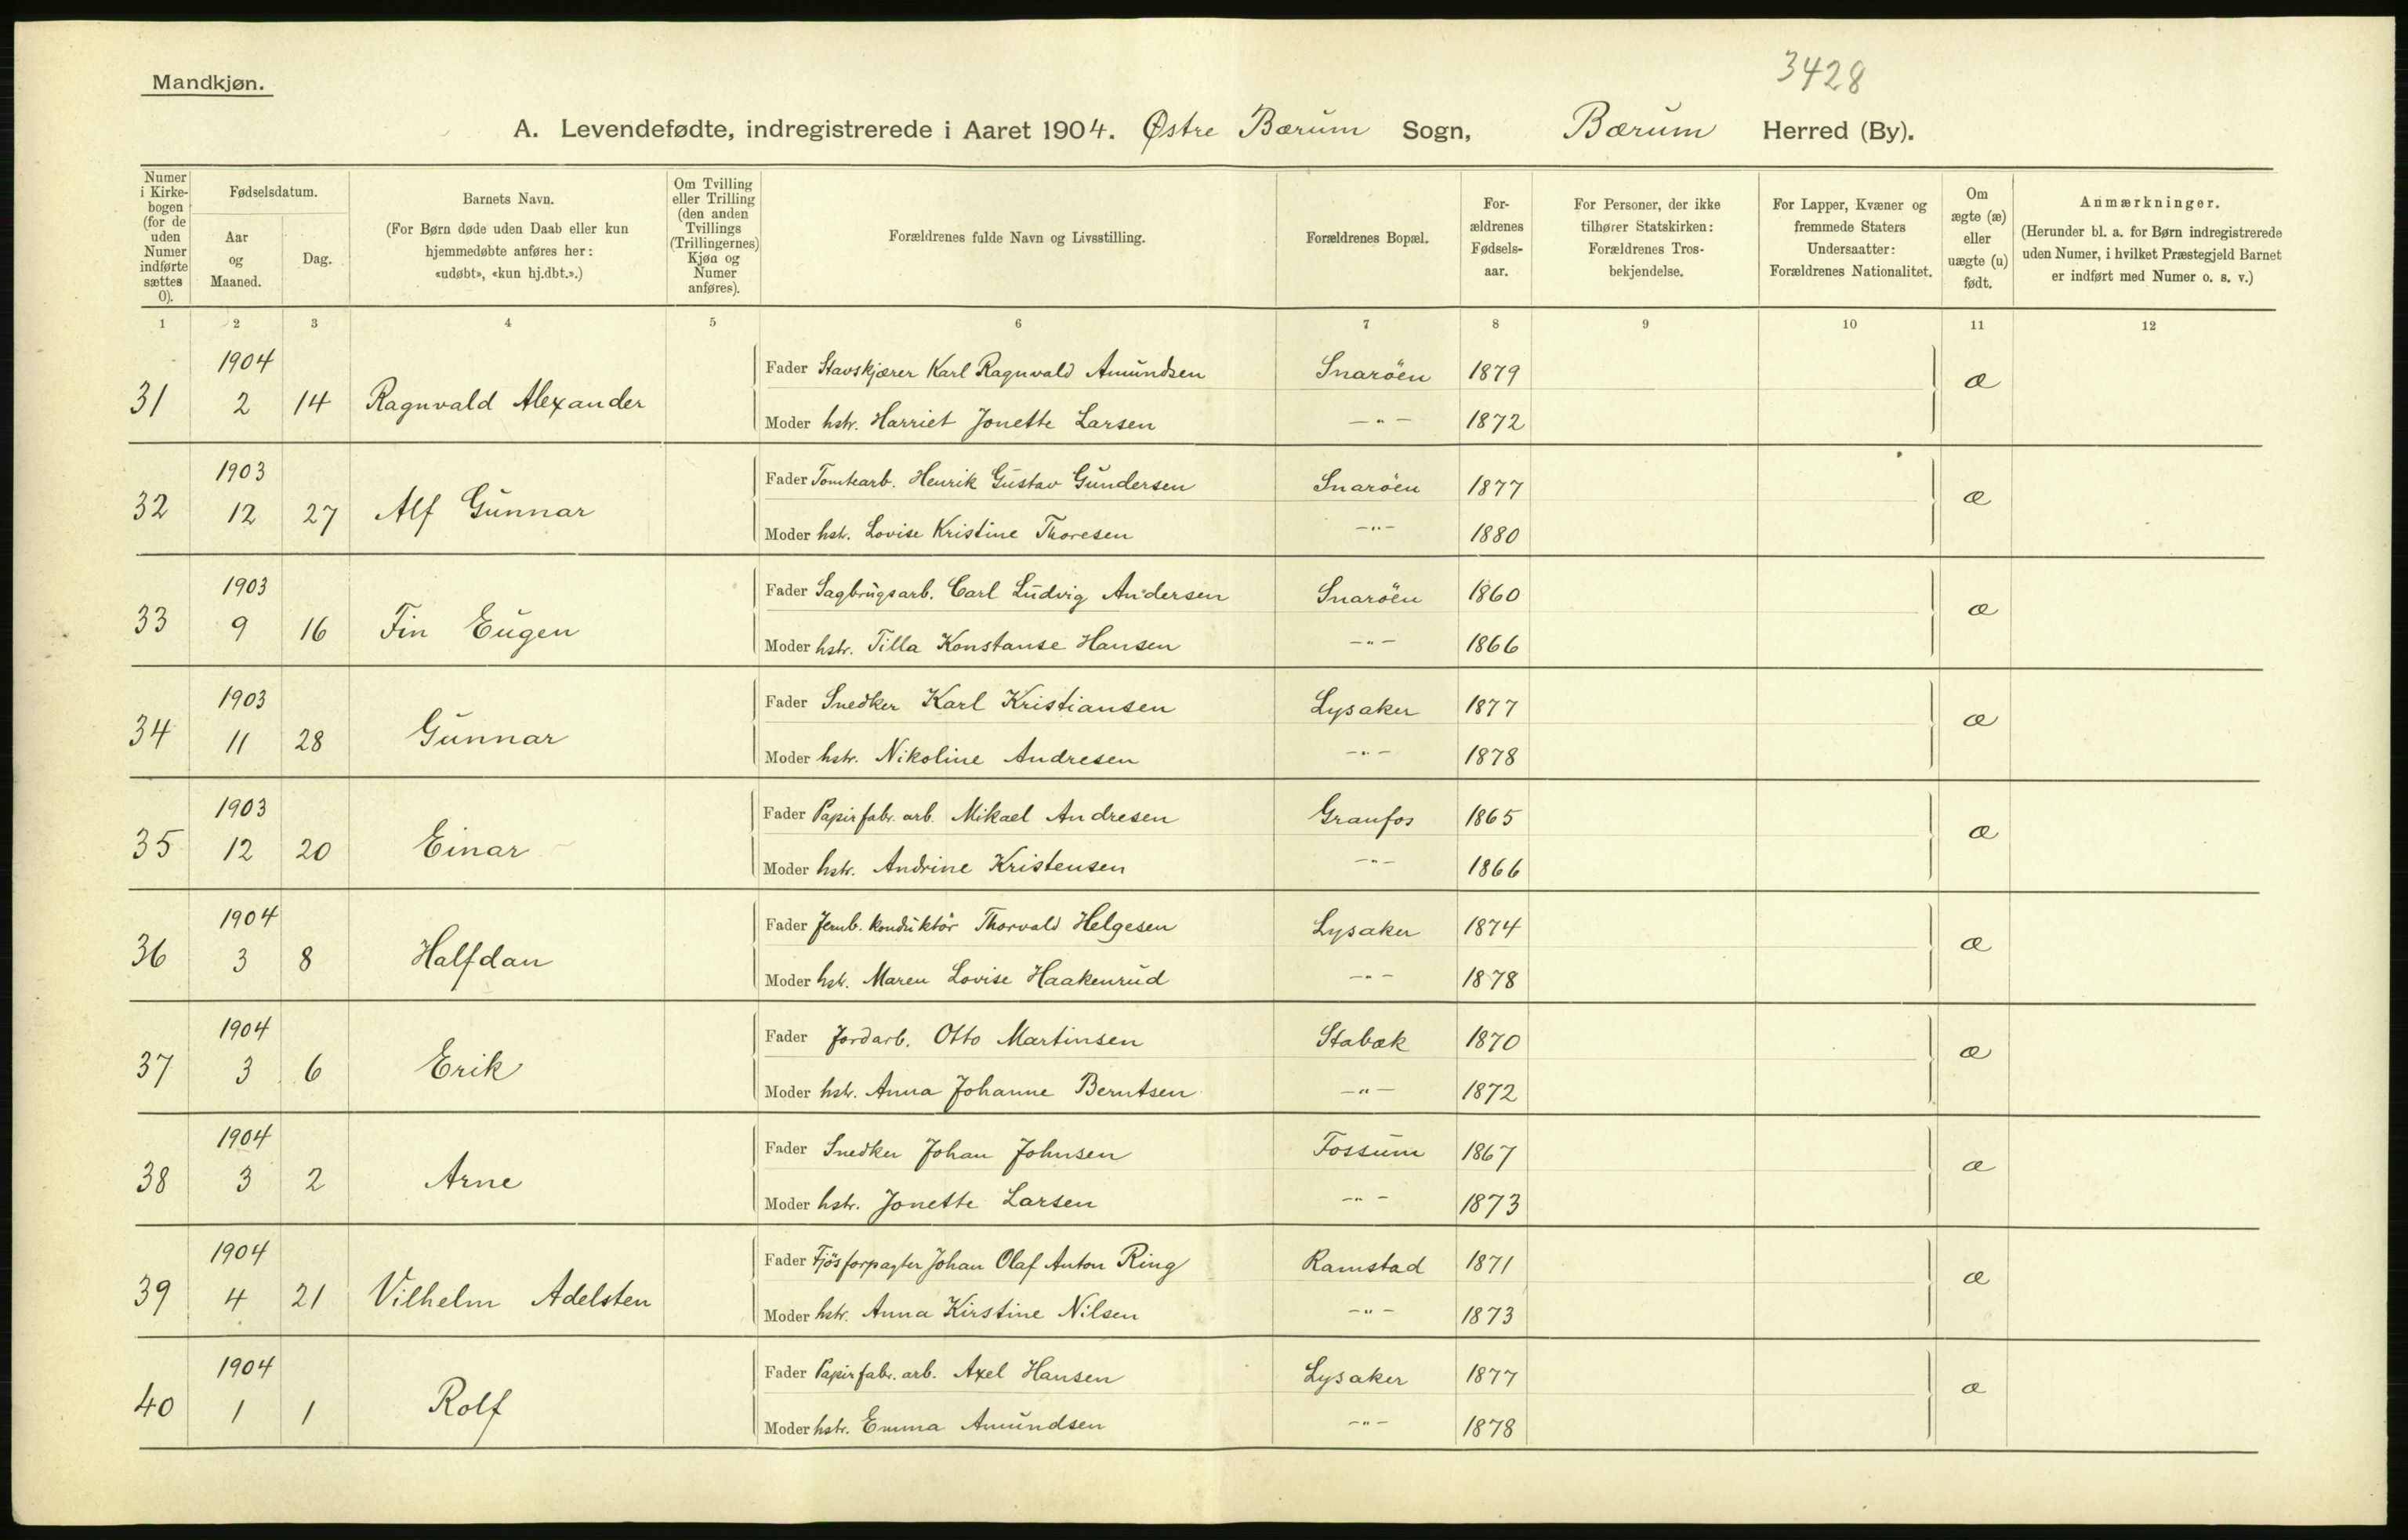 3428
Mandkjøn.
A. Levendefødte, indregistrerede i Aaret 1904. Østre Bærum Sogn, Bærum Herred (By).
Numer i Kirkebogen (for de uden Numer indførte sættes 0).
Fødselsdatum.
Aar og Maaned.
Dag.
Barnets Navn.
(For Børn døde uden Daab eller kun hjemmedøbte anføres her: «udøbt», «kun hj.dbt.».)
Om Tvilling eller Trilling (den anden Tvillings (Trillingernes) Kjøn og Numer anføres).
Forældrenes fulde Navn og Livsstilling.
Forældrenes Bopæl.
Forældrenes Fødselsaar.
For Personer, der ikke tilhører Statskirken: Forældrenes Trosbekjendelse.
For Lapper, Kvæner og fremmede Staters Undersaatter: Forældrenes Nationalitet.
Om ægte (æ) eller uægte (u) født.
Anmærkninger.
(Herunder bl. a. for Børn indregistrerede uden Numer, i hvilket Præstegjeld Barnet er indført med Numer o. s. v.)
1 2 3 4 5 6 7 8 9 10 11 12
1904
31 2 14 Ragnvald Alexander
Fader Stavskjærer Karl Ragnvald Amundsen Snaröen 1879 æ
Moder hstr. Harriet Jonette Larsen —"— 1872
1903
32 12 27 Alf Gunnar
Fader Tomtearb. Henrik Gustav Gundersen Snaröen 1877 æ
Moder hstr. Lovise Kristine Thoresen —"— 1880
1903
33 9 16 Fin Eugen
Fader Sagbrugsarb. Carl Ludvig Andersen Snaröen 1860 æ
Moder hstr. Tilla Konstanse Hansen —"— 1866
1903
34 11 28 Gunnar
Fader Snedker Karl Kristiansen Lysaker 1877 æ
Moder hstr. Nikoline Andresen —"— 1878
1903
35 12 20 Einar
Fader Papirfabr. arb. Mikael Andresen Granfos 1865 æ
Moder hstr. Andrine Kristensen —"— 1866
1904
36 3 8 Halfdan
Fader Jernb. konduktör Thorvald Helgesen Lysaker 1874 æ
Moder hstr. Maren Lovise Haakenrud —"— 1878
1904
37 3 6 Erik
Fader Jordarb. Otto Martinsen Stabæk 1870 æ
Moder hstr. Anna Johanne Berntsen —"— 1872
1904
38 3 2 Arne
Fader Snedker Johan Johnsen Fossum 1867 æ
Moder hstr. Jonette Larsen —"— 1873
1904
39 4 21 Vilhelm Adelsten
Fader Fjösforpagter Johan Olaf Anton Ring Ramstad 1871 æ
Moder hstr. Anna Kirstine Nilsen —"— 1873
1904
40 1 1 Rolf
Fader Papirfabr. arb. Axel Hansen Lysaker 1877 æ
Moder hstr. Emma Amundsen —"— 1878